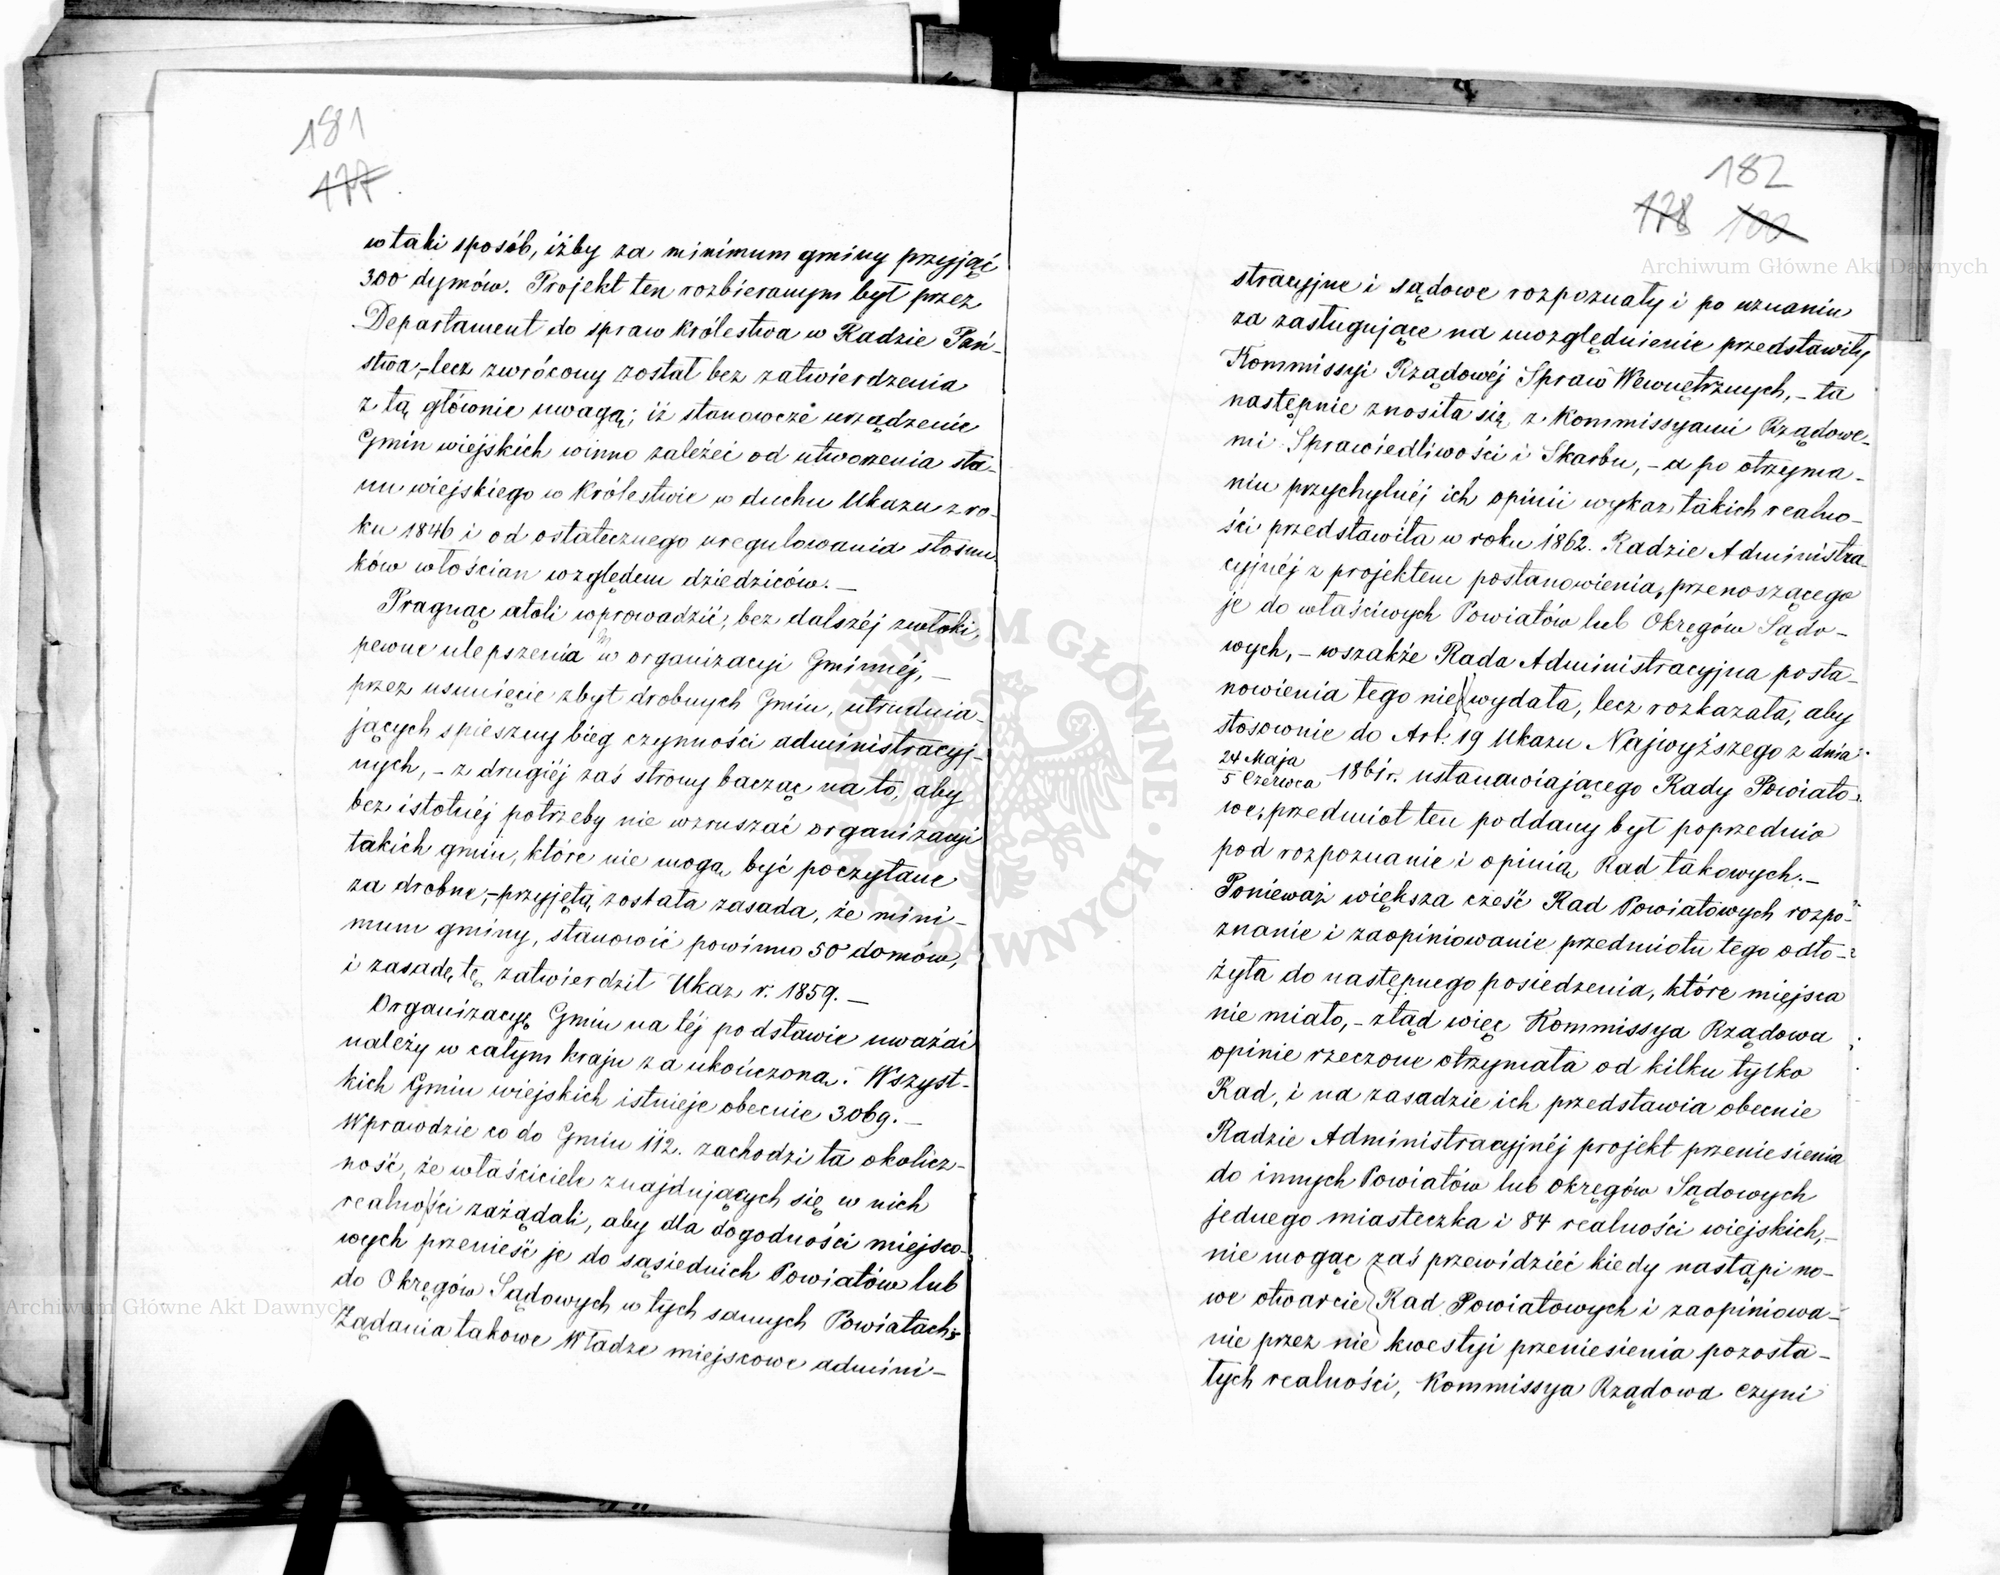 181
177
w taki sposób, iżby za minimum gminy przyjąć
300 dymów. Projekt ten rozbieranym był przez
Departament do spraw Królestwa w Radzie Pań-
stwa, – lecz zwrócony został bez zatwierdzenia
z tą głównie uwagą; iż stanowcze urządzenie
Gmin wiejskich winno zależeć od utworzenia sta-
nu wiejskiego w Królestwie w duchu Ukazu z ro-
ku 1846 i od ostatecznego uregulowania stosun-
ków włościan względem dziedziców. –
Pragnąc atoli wprowadzić, bez dalszéj zwłoki,
pewne ulepszenia w organizacyi Gminnéj, –
przez usunięcie zbyt drobnych Gmin, utrudnia-
jących spieszny bieg czynności administracyj-
nych, – z drugiéj zaś strony bacząc na to, aby
bez istotnéj potrzeby nie wzruszać organizacyi
takich gmin, które nie mogą być poczytane
za drobne, – przyjętą została zasada, że mini-
mum gminy, stanowić powinno 50 domów,
i zasadę tę zatwierdził Ukaz r. 1859. –
Organizacyę Gmin na téj podstawie uważać
należy w całym kraju za ukończoną. Wszyst-
kich Gmin wiejskich istnieje obecnie 3069. –
Wprawdzie co do Gmin 112. zachodzi ta okolicz-
ność, że właściciele znajdujących się w nich
realności zażądali, aby dla dogodności miejsco-
wych przenieść je do sąsiednich Powiatów lub
do Okręgów Sądowych w tych samych Powiatach.
Żądania takowe Władze miejscowe admini-
182
178 100
stracyjne i sądowe rozpoznały i po uznaniu
za zasługujące na uwzględnienie przedstawiły
Kommissyi Rządowéj Spraw Wewnętrznych, – ta
następnie znosiła się z Kommissyami Rządowe-
mi Sprawiedliwości i Skarbu, – a po otrzyma-
niu przychylnéj ich opinii wykaz takich realno-
ści przedstawiła w roku 1862. Radzie Administra-
cyjnéj z projektem postanowienia, przenoszącego
je do właściwych Powiatów lub Okręgów Sądo-
wych, – wszakże Rada Administracyjna posta-
nowienia tego nie wydała, lecz rozkazała, aby
stosownie do Art. 19 Ukazu Najwyższego z dnia
24 Maja
5 Czerwca 1861 r. ustanawiającego Rady Powiato-
we, przedmiot ten poddany był poprzednio
pod rozpoznanie i opinią Rad takowych. –
Ponieważ większa część Rad Powiatowych rozpo-
znanie i zaopiniowanie przedmiotu tego odło-
żyła do następnego posiedzenia, które miejsca
nie miało, – ztąd więc Kommissya Rządowa
opinie rzeczone otrzymała od kilku tylko
Rad, i na zasadzie ich przedstawia obecnie
Radzie Administracyjnéj projekt przeniesienia
do innych Powiatów lub Okręgów Sądowych
jednego miasteczka i 84 realności wiejskich, –
nie mogąc zaś przewidzieć kiedy nastąpi no-
we otwarcie Rad Powiatowych i zaopiniowa-
nie przez nie kwestyi przeniesienia pozosta-
łych realności, Kommissya Rządowa czyni
Archiwum Główne Akt Dawnych
Archiwum Główne Akt Dawnych
ARCHIWUM GŁÓWNE AKT DAWNYCH